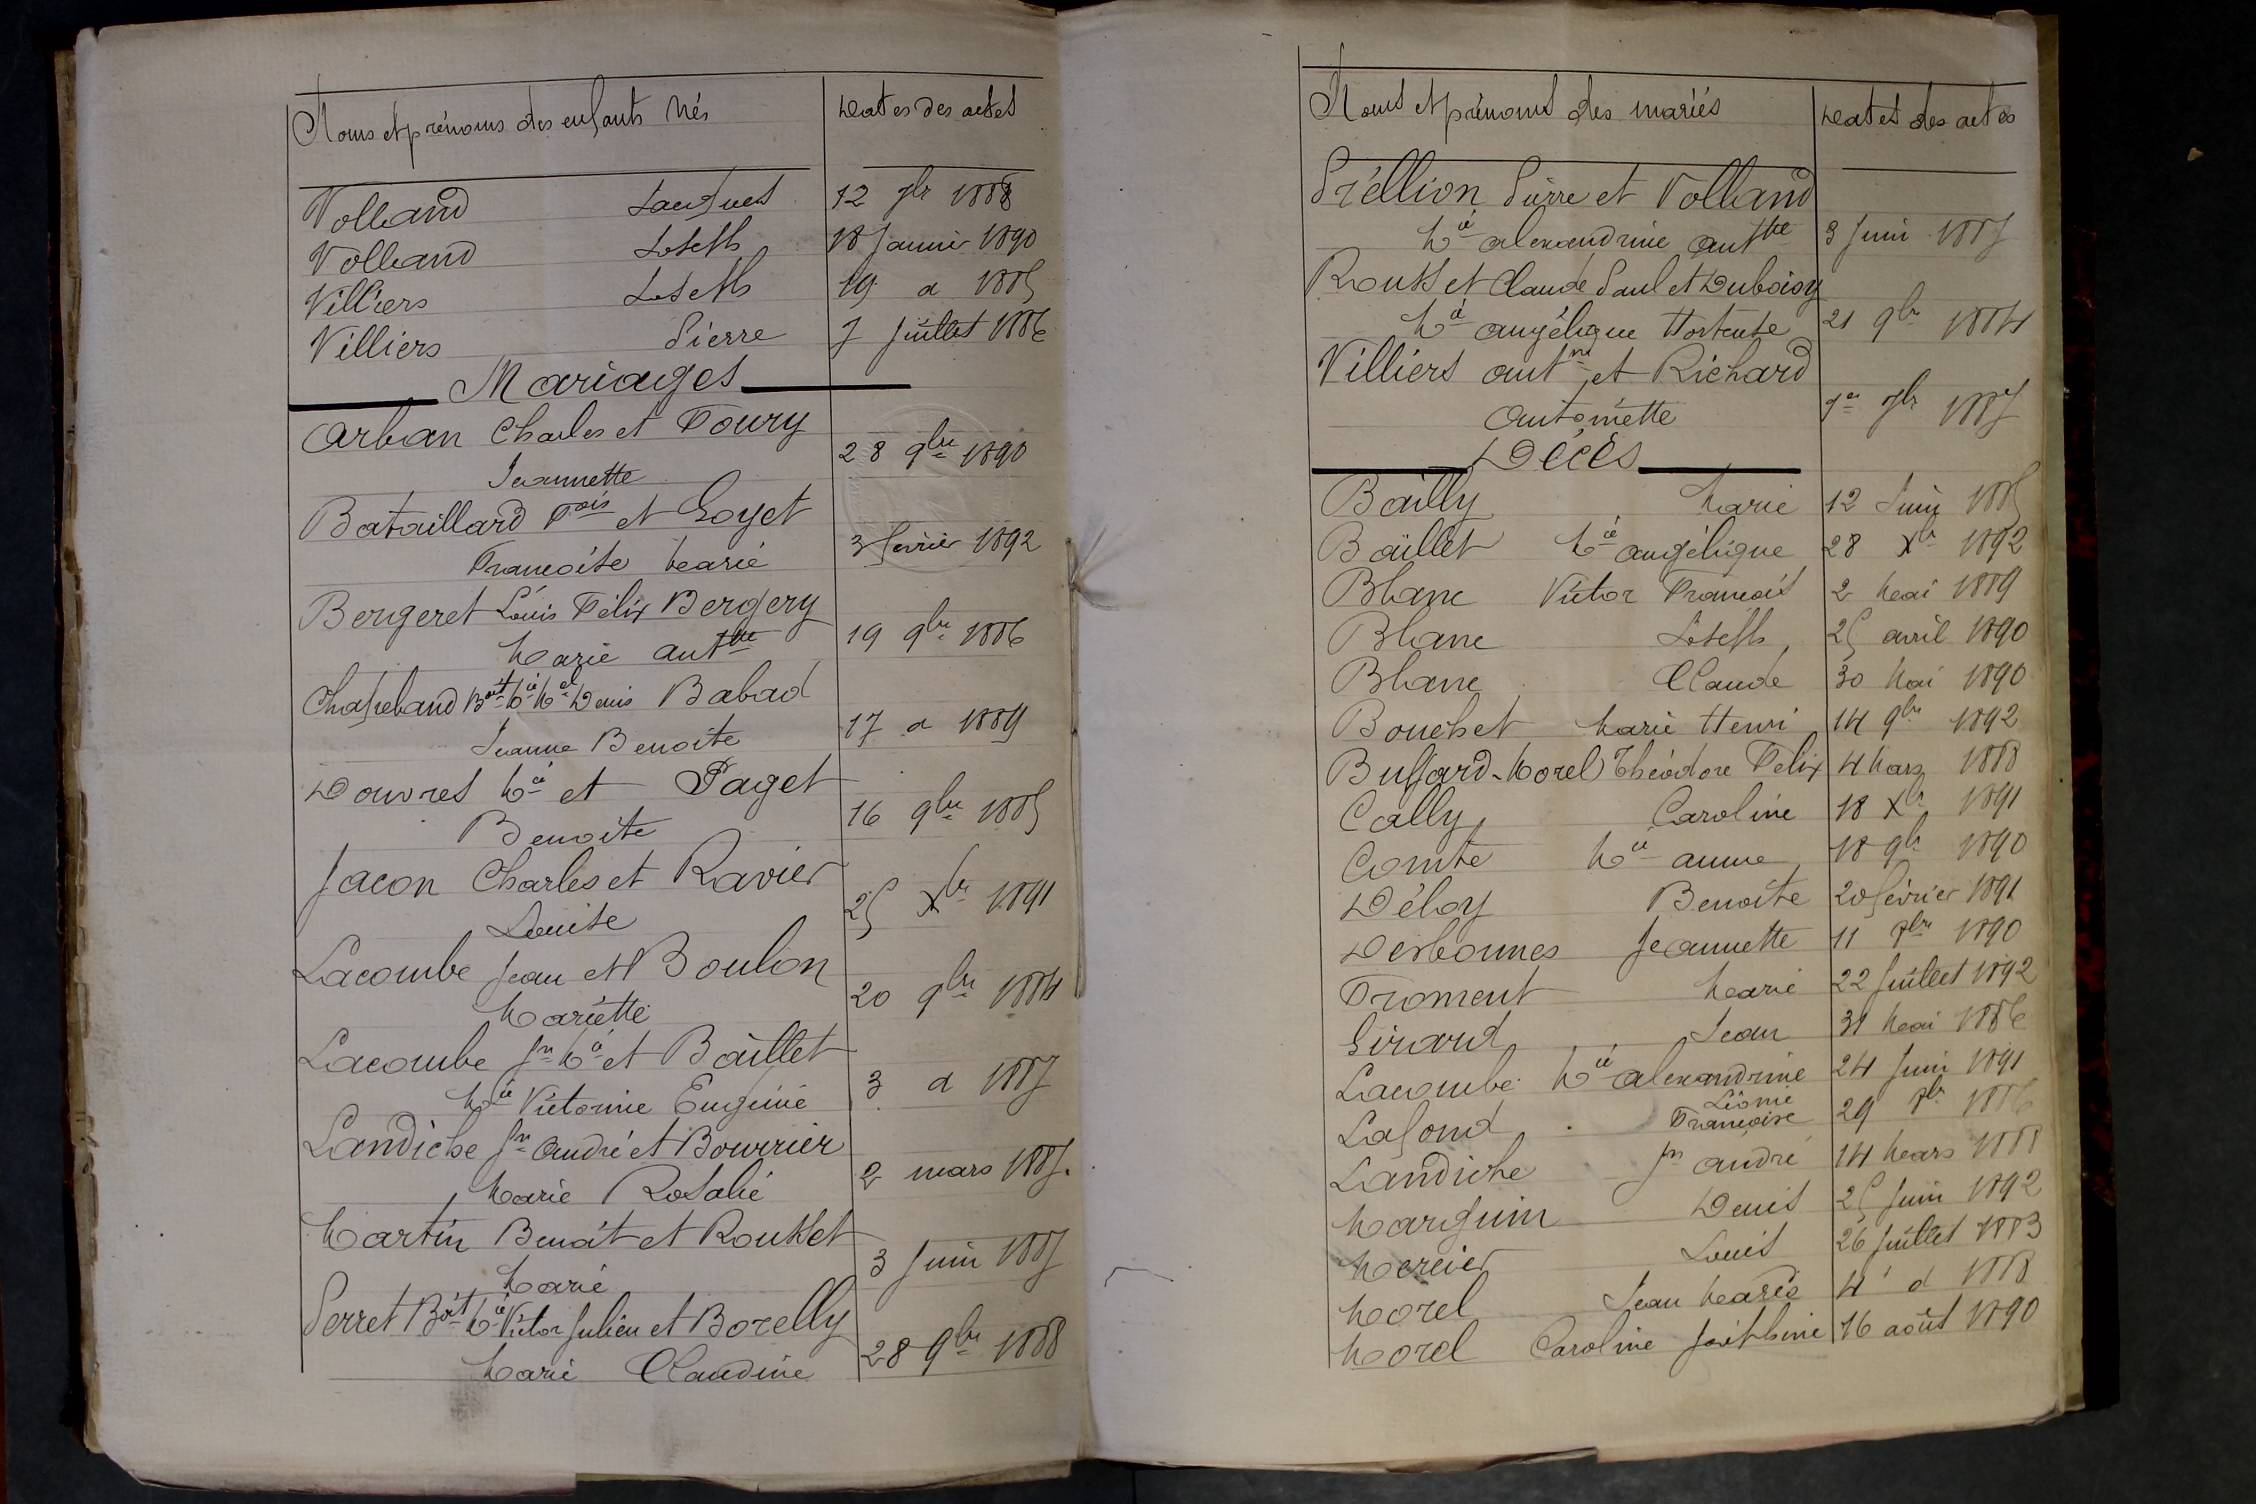 Noms et prénoms des enfants Nés Dates des actes
Volland Jacques 12 7br 1888
Volland Joseph 18 Janvier 1890
Villiers Joseph 19 d 1885
Villiers Pierre 7 Juillet 1886
Mariages
Arban Charles et Foury
Jeannette 28 9bre 1890
Bataillard Fois et Goyet
Françoise Marie 3 février 1892
Bergeret Louis Félix Bergery
Marie Antte 19 9bre 1886
Chapeland Boit Mie Mel Denis Babad
Jeanne Benoite 17 d 1889
Douvres Mie et Paget
Benoite 16 9bre 1885
Jacon Charles et Ravier
Louise 25 Xbr 1891
Lacombe Jean et Boulon
Mariette 20 9bre 1884
Lacombe Jn Mie et Baillet
Mie Victorine Eugénie 3 d 1887
Landiche Jn André et Bourrier
Marie Rosalie 2 mars 1887.
Martin Benoit et Rousset
Marie 3 Juin 1887
Perret Boit Mie Victor Julien et Borelly
Marie Claudine 28 9bre 1888
Noms et prénoms des mariés Dates des actes
Préllion Pierre et Volland
Mie Alexandrine Antte 3 Juin 1887
Rousset Claude Paul et Duboisy
Mie Angélique Hortense 21 9br 1884
Villiers Antne et Richard
Antoinette 1er 7br 1887
Décès
Bailly Marie 12 Juin 1885
Baillet Mie Angélique 28 Xbr 1892
Blanc Victor François 2 Mai 1889
Blanc Joseph 25 avril 1890
Blanc Claude 30 Mai 1890
Bouchet Marie Henri 14 9bre 1892
Buffard-Morel Théodore Félix 4 Mars 1888
Cally Caroline 18 Xbr 1891
Comte Mie Anne 18 9br 1890
Déloy Benoite 20 février 1891
Desbonnes Jeannette 11 7bre 1890
Froment Marie 22 Juillet 1892
Girard Jean 31 Mai 1886
Lacombe Mie Alexandrine 24 Juin 1891
Léonie
Lafond Françoise 29 7br 1886
Landiche Jn André 14 Mars 1888
Marguin Denis 25 Juin 1892
Mercier Louis 26 Juillet 1883
Morel Jean Marie 4 d 1888
Morel Caroline Joséphine 16 août 1890